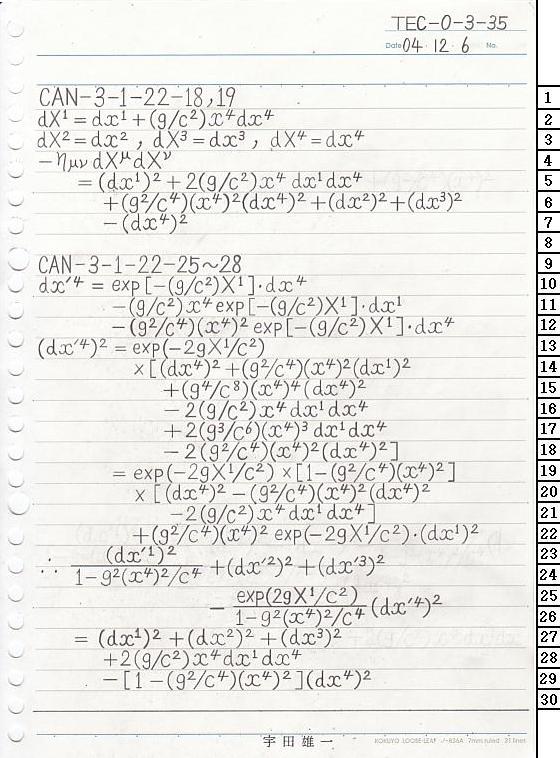 TEC-0-3-35
Date 04・12・6 No.
CAN-3-1-22-18,19
dX¹ = dx¹ + (g/c²)x⁴dx⁴
dX² = dx² , dX³ = dx³ , dX⁴ = dx⁴
−ημν dX^μ dX^ν
= (dx¹)² + 2(g/c²)x⁴ dx¹dx⁴
+(g²/c⁴)(x⁴)²(dx⁴)² + (dx²)² + (dx³)²
−(dx⁴)²
CAN-3-1-22-25~28
dx′⁴ = exp[−(g/c²)X¹]・dx⁴
−(g/c²)x⁴ exp[−(g/c²)X¹]・dx¹
−(g²/c⁴)(x⁴)² exp[−(g/c²)X¹]・dx⁴
(dx′⁴)² = exp(−2gX¹/c²)
×[(dx⁴)² + (g²/c⁴)(x⁴)²(dx¹)²
+(g⁴/c⁸)(x⁴)⁴(dx⁴)²
−2(g/c²)x⁴dx¹dx⁴
+2(g³/c⁶)(x⁴)³dx¹dx⁴
−2(g²/c⁴)(x⁴)²(dx⁴)²]
= exp(−2gX¹/c²)×[1−(g²/c⁴)(x⁴)²]
×[(dx⁴)² − (g²/c⁴)(x⁴)²(dx⁴)²
−2(g/c²)x⁴dx¹dx⁴]
+(g²/c⁴)(x⁴)² exp(−2gX¹/c²)・(dx¹)²
∴ (dx′¹)² / 1−g²(x⁴)²/c⁴ + (dx′²)² + (dx′³)²
− exp(2gX¹/c²) / 1−g²(x⁴)²/c⁴ (dx′⁴)²
= (dx¹)² + (dx²)² + (dx³)²
+2(g/c²)x⁴dx¹dx⁴
−[1−(g²/c⁴)(x⁴)²](dx⁴)²
宇田雄一
KOKUYO LOOSE-LEAF ノ-836A 7mm ruled 31 lines
1
2
3
4
5
6
7
8
9
10
11
12
13
14
15
16
17
18
19
20
21
22
23
24
25
26
27
28
29
30